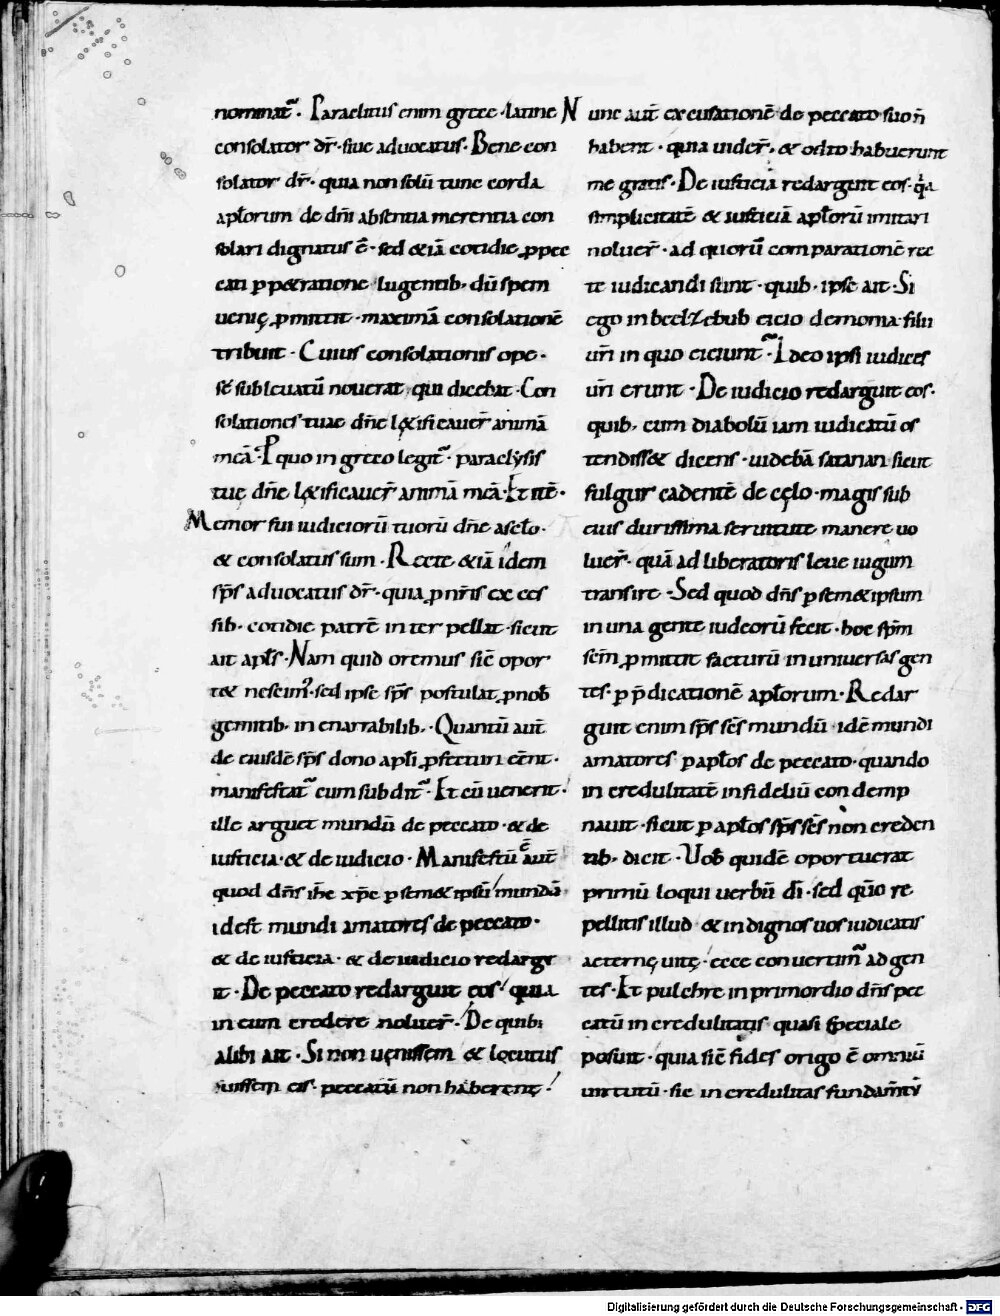 nominat᷑. Paraclitus enim grece · latine
consolator dr̄ · siue aduocatus · Bene con
solator dr̄ · quia non solū tunc corda
apl̄orum de dn̄i absentia merentia con
solari dignatus ē · sed &iā cotidie ꝓ pec
cati ꝑpetratione lugentib; dū spem
uenię ꝓmittit · maximā consolationē
tribuit · Cuius consolationis ope
sē subleuatū nouerat qui dicebat · Con
solationes tuae dn̄e l&ificauer̄ animā
meā · P quo in greco legit᷑ · paraclysis
tuę dn̄e l&ificauer̄ animā meā · Et itē ·
Memor fui iudiciorū tuorū dn̄e a scl̄o ·
& consolatus sum · Recte &iā idem
sp̄s aduocatus dr̄ · quia ꝓ nr̄is excces
sib; cotidie patrē interpellat · sicut
ait apl̄s · Nam quid oremus sic̄ opor
t& nescim᷒ · sed ipse sp̄s postulat ꝓ nob̄
gemitib; in enarrabilib; · Quantū aut̄
de eiusdē sp̄s dono apl̄i ꝓfectum cēnt ·
manifestat᷑ cum subdit᷑ · Et cū uenerit
ille arguet mundū de peccato · & de
iusticia · & de iudicio · Manifestū ē aut̄
quod dn̄s ih̄c xp̄c ꝑ sem&ipsū mundū
id est mundi amatores de peccato ·
& de iusticia · & de iudicio redargu
it · De peccato redarguit eos quia
in eum credere noluer̄ · De quibꝰ
alibi ait · Si non uenissem & locutus
fuissem eis · peccatū non haberent
Nunc aut̄ excusationē de peccato suo n̄
habent · quia uider̄ · & odio habuerunt
me gratis · De iusticia redarguit eos · q̄a
simplicitatē & iusticiā apl̄orū imitari
noluer̄ · ad quorū comparationē rec
te iudicandi sunt · quib; ipse ait · Si
ego in beelzebub eicio demonia · filii
ur̄i in quo eiciunt᷑ · Ideo ipsi iudices
ur̄i erunt · De iudicio redarguit eos ·
quib; eum diabolū iam iudicatū os
tendiss& dicens · uidebā satanan sicut
fulgur cadentē de cęlo · magis sub
eius durissima seruitute manere uo
luer̄ · quā ad liberatoris leue iugum
transire · Sed quod dn̄s ꝑ sem&ipsum
in una gente iudeorū fecit · hoc sp̄m
sc̄m ꝓmittit facturū in uniuersas gen
tes · ꝑ p̄dicationē apl̄orum · Redar
guit enim sp̄s sc̄s mundū · idē mundi
amatores ꝑ apl̄os de peccato · quando
in credulitatē infideliū condemp
nauit · sicut ꝑ apl̄os sp̄s sc̄s non creden
tib; dicit · Uob̄ quidē oportuerat
primū loqui uerbū dī · sed quō re
pellitis illud & indignos uos iudicatis
aeternę uitę · ecce conuertim᷒ ad gen
tes · Et pulchre in primordio dn̄s pec
catū incredulitatis quasi speciale
posuit · quia sic̄ fides origo ē omniū
uirtutū · sic incredulitas fundam̄tū